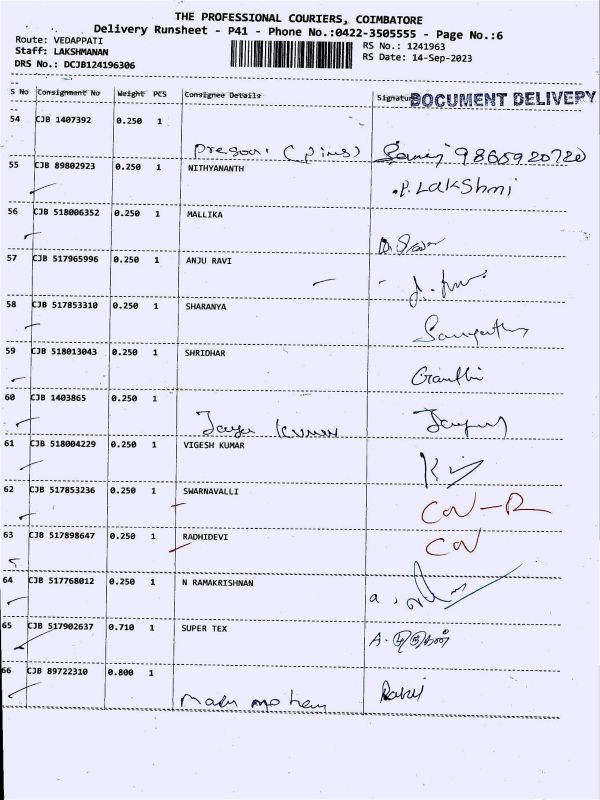 THE PROFESSIONAL COURIERS, COIMBATORE
Delivery Runsheet - P41 - Phone No.:0422-3505555 - Page No.:6
Route: VEDAPPATI
RS No.: 1241963
Staff: LAKSHMANAN
RS Date: 14-Sep-2023
DRS No.: DCJB124196306
S No Consignment No Weight PCS Consignee Details Signature
DOCUMENT DELIVERY
54 CJB 1407392 0.250 1
9865920720
55 CJB 89802923 0.250 1 NITHYANANTH
.P. LAKShmi
56 CJB 518006352 0.250 1 MALLIKA
57 CJB 517965996 0.250 1 ANJU RAVI
58 CJB 517853310 0.250 1 SHARANYA
59 CJB 518013043 0.250 1 SHRIDHAR
60 CJB 1403865 0.250 1
61 CJB 518004229 0.250 1 VIGESH KUMAR
62 CJB 517853236 0.250 1 SWARNAVALLI
63 CJB 517898647 0.250 1 RADHIDEVI
64 CJB 517768012 0.250 1 N RAMAKRISHNAN
65 CJB 517902637 0.710 1 SUPER TEX
66 CJB 89722310 0.800 1